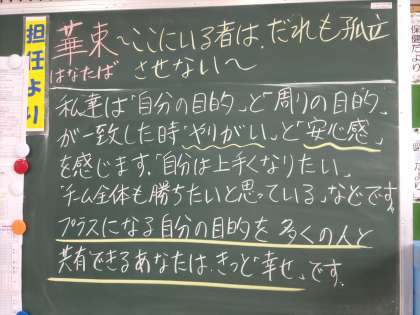 担任より
華束~ここにいる者は、だれも孤立
はなたば
させない~
私達は「自分の目的」と「周りの目的」
が一致した時「やりがい」と「安心感」
を感じます。「自分は上手くなりたい」
「チーム全体も勝ちたいと思っている」などです。
プラスになる自分の目的を多くの人と
共有できるあなたは、きっと「幸せ」です。
保健だより